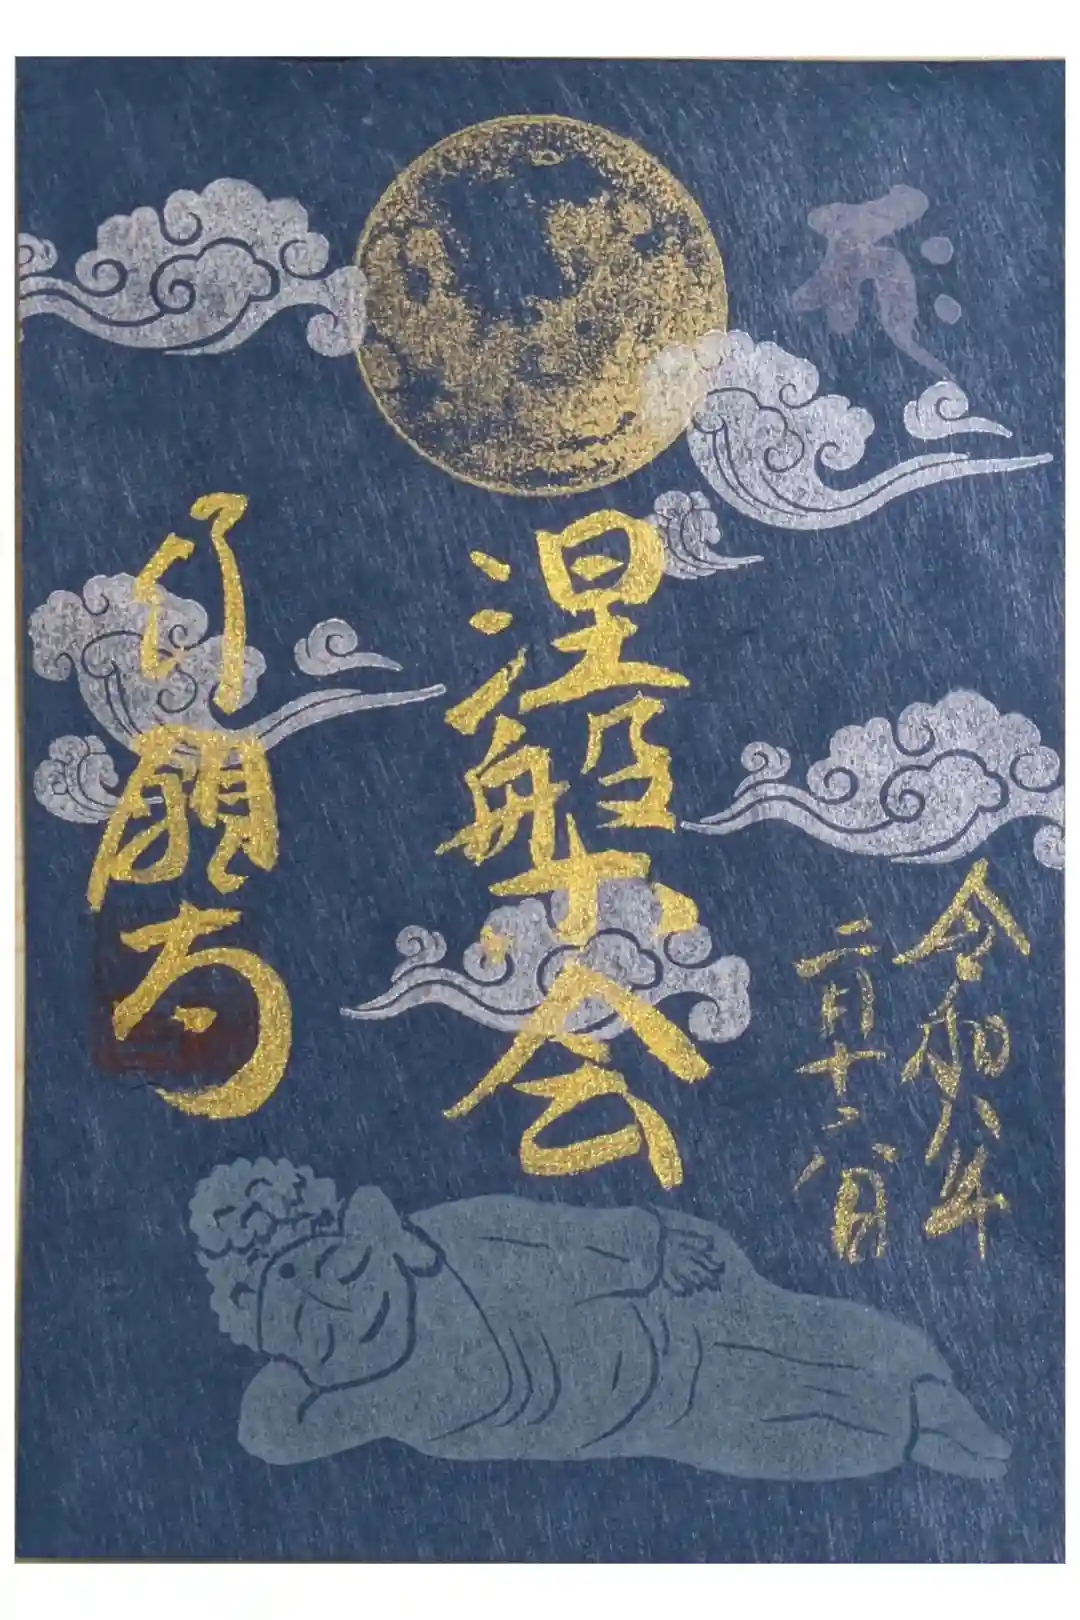 令和八年
二月十六日
涅槃会
行願寺